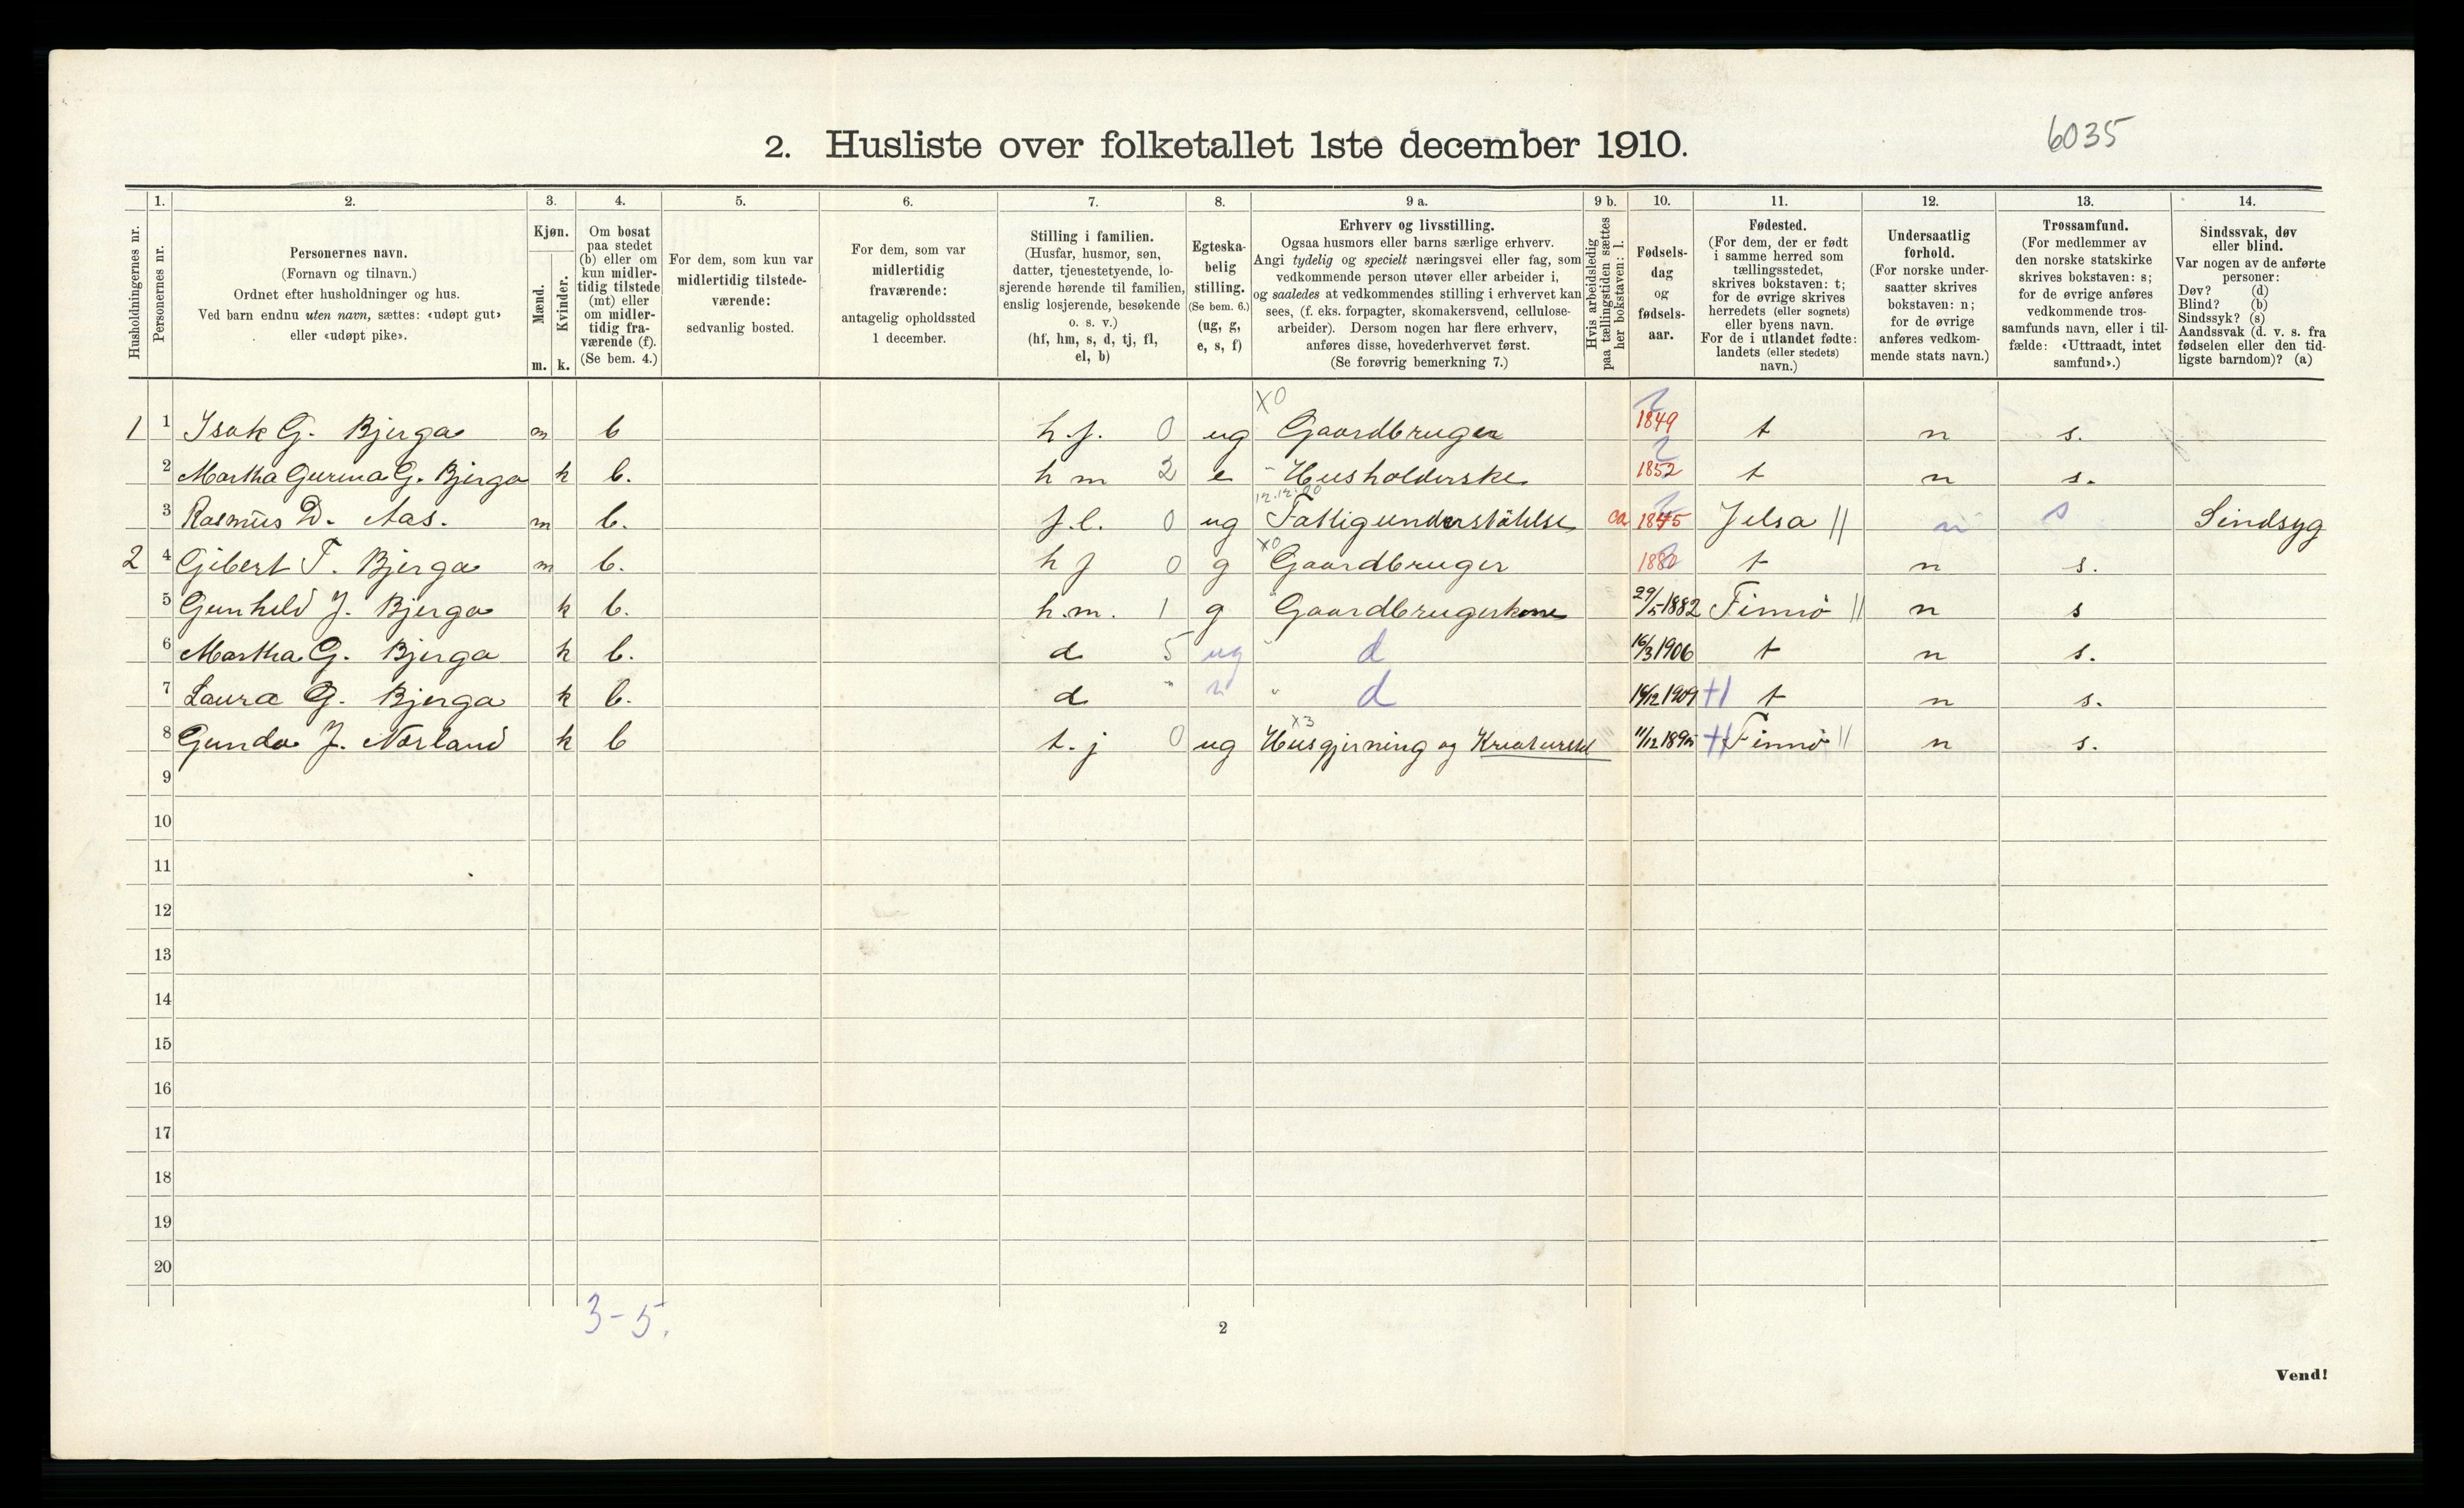 2. Husliste over folketallet 1ste december 1910.
6035
Husholdningernes nr.
1.
Personernes nr.
2.
Personernes navn.
(Fornavn og tilnavn.)
Ordnet efter husholdninger og hus.
Ved barn endnu uten navn, sættes: «udøpt gut»
eller «udøpt pike».
3.
Kjøn.
Mænd.
m.
Kvinder.
k.
4.
Om bosat
paa stedet
(b) eller om
kun midler-
tidig tilstede
(mt) eller
om midler-
tidig fra-
værende (f).
(Se bem. 4.)
5.
For dem, som kun var
midlertidig tilstede-
værende:
sedvanlig bosted.
6.
For dem, som var
midlertidig
fraværende:
antagelig opholdssted
1 december.
7.
Stilling i familien.
(Husfar, husmor, søn,
datter, tjenestetyende, lo-
sjerende hørende til familien,
enslig losjerende, besøkende
o. s. v.)
(hf, hm, s, d, tj, fl,
el, b)
8.
Egteska-
belig
stilling.
(Se bem. 6.)
(ug, g,
e, s, f)
9 a.
Erhverv og livsstilling.
Ogsaa husmors eller barns særlige erhverv.
Angi tydelig og specielt næringsvei eller fag, som
vedkommende person utøver eller arbeider i,
og saaledes at vedkommendes stilling i erhvervet kan
sees, (f. eks. forpagter, skomakersvend, cellulose-
arbeider). Dersom nogen har flere erhverv,
anføres disse, hovederhvervet først.
(Se forøvrig bemerkning 7.)
9 b.
Hvis arbeidsledig
paa tællingstiden sættes
her bokstaven: l.
10.
Fødsels-
dag
og
fødsels-
aar.
11.
Fødested.
(For dem, der er født
i samme herred som
tællingsstedet,
skrives bokstaven: t;
for de øvrige skrives
herredets (eller sognets)
eller byens navn.
For de i utlandet fødte:
landets (eller stedets)
navn.)
12.
Undersaatlig
forhold.
(For norske under-
saatter skrives
bokstaven: n;
for de øvrige
anføres vedkom-
mende stats navn.)
13.
Trossamfund.
(For medlemmer av
den norske statskirke
skrives bokstaven: s;
for de øvrige anføres
vedkommende tros-
samfunds navn, eller i til-
fælde: «Uttraadt, intet
samfund».)
14.
Sindssvak, døv
eller blind.
Var nogen av de anførte
personer:
Døv? (d)
Blind? (b)
Sindssyk? (s)
Aandssvak (d. v. s. fra
fødselen eller den tid-
ligste barndom)? (a)
X0
1 1 Isak G. Bjerga m b h.f. 0 ug Gaardbruger 1849 t n s.
2 Martha Gurina G. Bjerga k b. h m 2 e " Husholderske 1852 t n s.
12.12.00
3 Rasmus D. Aas. m b. f.l. 0 ug Fattigunderstöttelse ca 1845 Jelsa || n s Sindsyg
X0
2 4 Gibert T. Bjerga m b. h f 0 g Gaardbruger 1880 t n s.
5 Gunhild J. Bjerga k b. h.m. 1 g Gaardbrugerkone 29/5 1882 Finnö || n s
6 Martha G. Bjerga k b. d 5 ug " d 16/3 1906 t n s.
7 Laura G. Bjerga k b. d " " d 14/12 1909 t n s.
X3
8 Gunda J. Norland k b t.j 0 ug Husgjerning og Kreaturstel 11/12 1895 Finnö || n s.
9
10
11
12
13
14
15
16
17
18
19
20
3-5.
2
Vend!